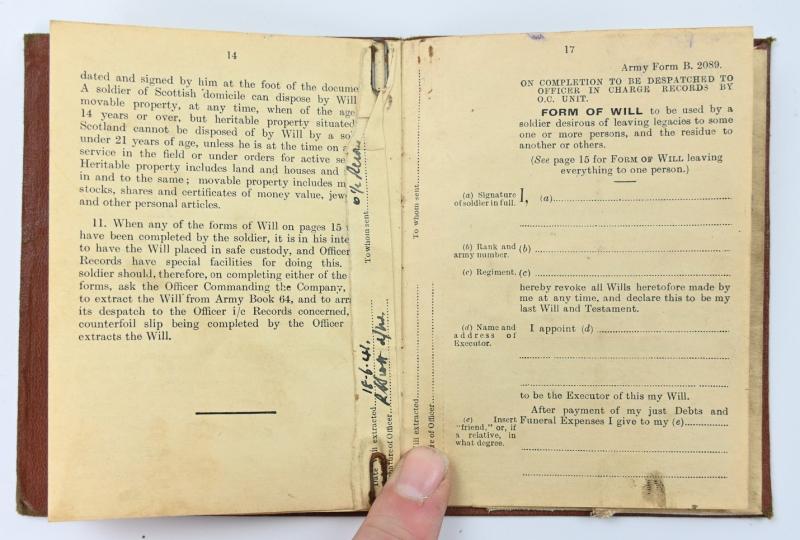 14
dated and signed by him at the foot of the docume
A soldier of Scottish domicile can dispose by Will
movable property, at any time, when of the age
14 years or over, but heritable property situated
Scotland cannot be disposed of by Will by a so
under 21 years of age, unless he is at the time on a
service in the field or under orders for active se
Heritable property includes land and houses and
in and to the same; movable property includes m
stocks, shares and certificates of money value, jew
and other personal articles.
11. When any of the forms of Will on pages 15
have been completed by the soldier, it is in his inte
to have the Will placed in safe custody, and Officer
Records have special facilities for doing this.
soldier should, therefore, on completing either of the
forms, ask the Officer Commanding the Company,
to extract the Will from Army Book 64, and to arr
its despatch to the Officer i/c Records concerned,
counterfoil slip being completed by the Officer
extracts the Will.
Date Will extracted 18.6.41. To whom sent o/c Records
nature of Officer
ill extracted To whom sent
re of Officer
17
Army Form B. 2089.
ON COMPLETION TO BE DESPATCHED TO
OFFICER IN CHARGE RECORDS BY
O.C. UNIT.
FORM OF WILL to be used by a
soldier desirous of leaving legacies to some
one or more persons, and the residue to
another or others.
(See page 15 for FORM OF WILL leaving
everything to one person.)
(a) Signature of soldier in full.
I, (a)
(b) Rank and army number.
(b)
(c) Regiment.
(c)
hereby revoke all Wills heretofore made by
me at any time, and declare this to be my
last Will and Testament.
(d) Name and address of Executor.
I appoint (d)
to be the Executor of this my Will.
After payment of my just Debts and
Funeral Expenses I give to my (e)
(e) Insert "friend," or, if a relative, in what degree.